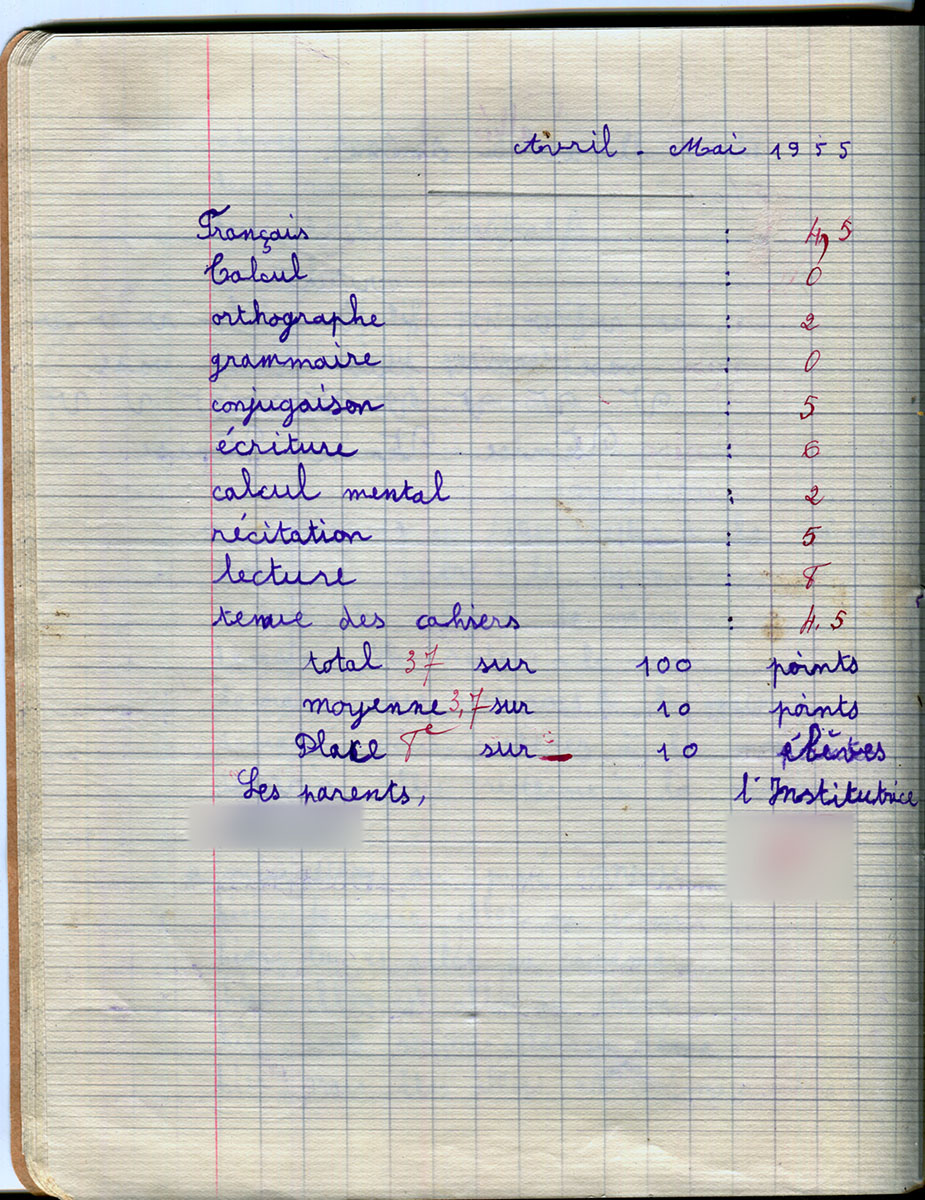 Avril - Mai 1955
Français : 4,5
Calcul : 0
orthographe : 2
grammaire : 0
conjugaison : 5
écriture : 6
calcul mental : 2
récitation : 5
lecture : 8
tenue des cahiers : 4.5
total 37 sur 100 points
moyenne 3,7 sur 10 points
Place 8e sur 10 élèves
Les parents, l'Institutrice